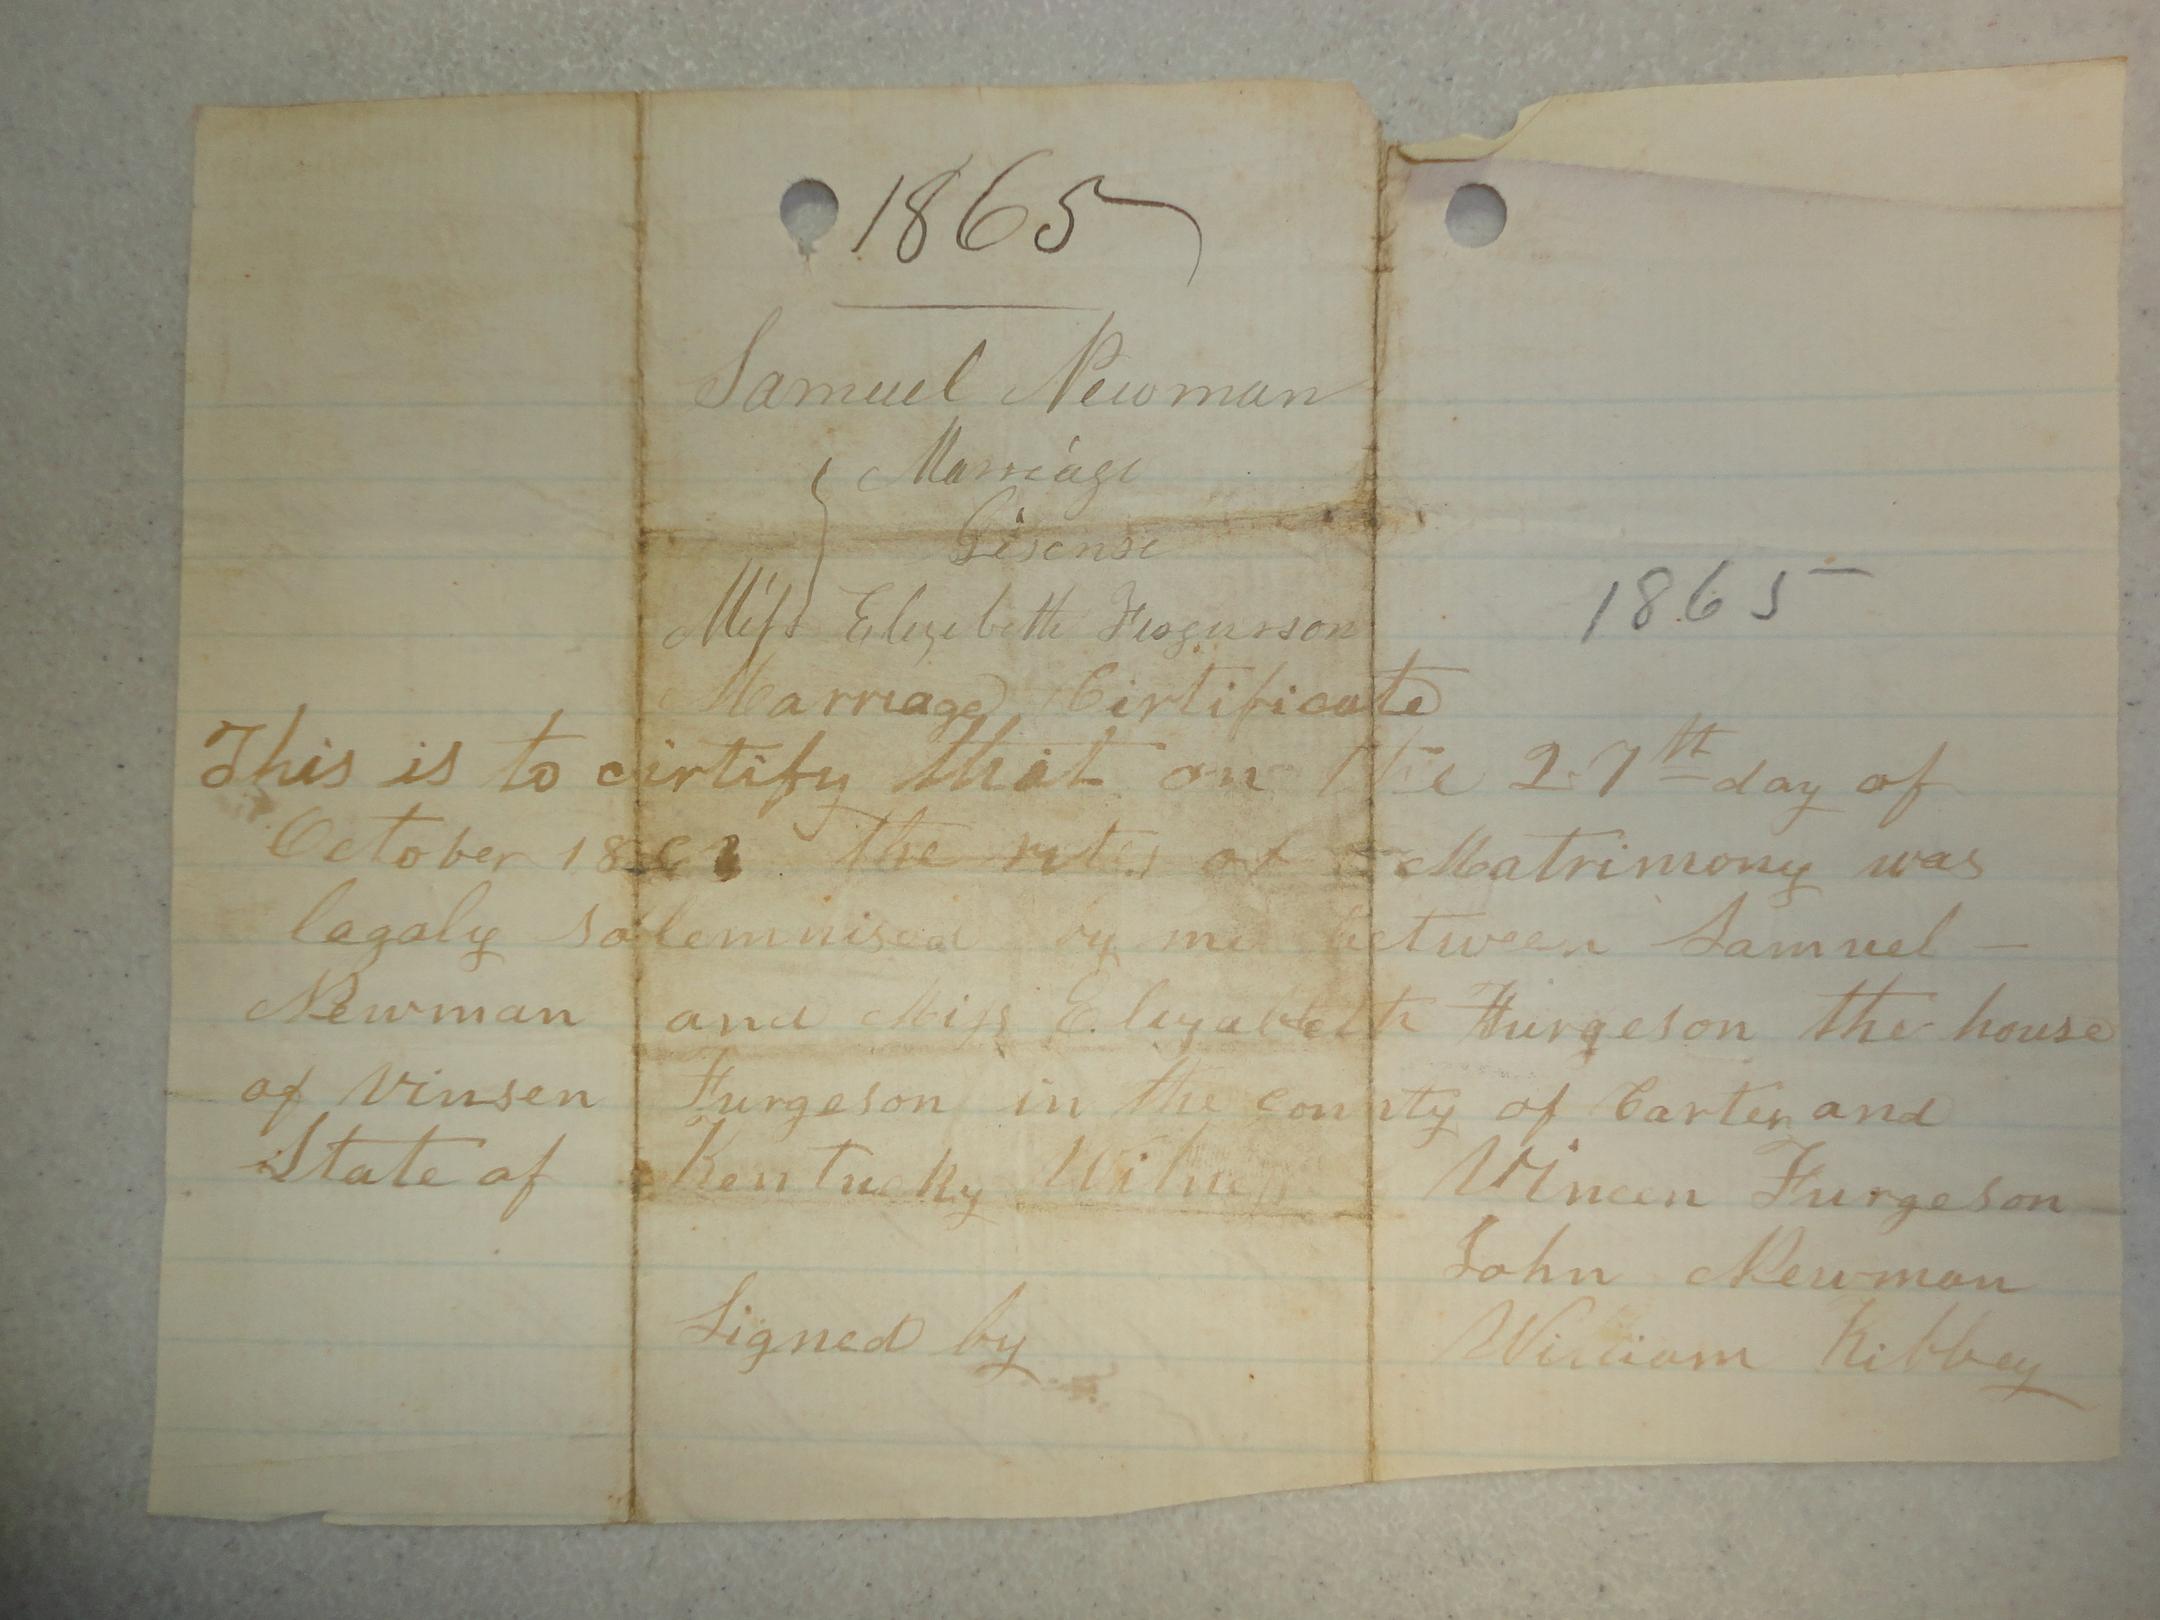 1865
Samuel Newman
Marriage
Lisense
Miss Elizebeth Furgurson
1865
Marriage Cirtificate
This is to cirtify that on the 27th day of
October the rites of Matrimony was
legaly solemnised by me between Samuel —
Newman and Miss Elizabeth Furgeson the house
of Vinsen Furgeson in the county of Carter and
State of Kentucky Witness Vincen Furgeson
John Newman
Signed by William Kibbey